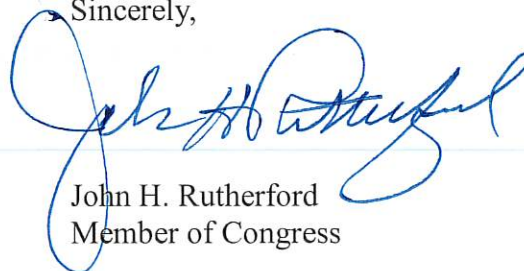 Sincerely,
John H Rutherford
John H. Rutherford
Member of Congress